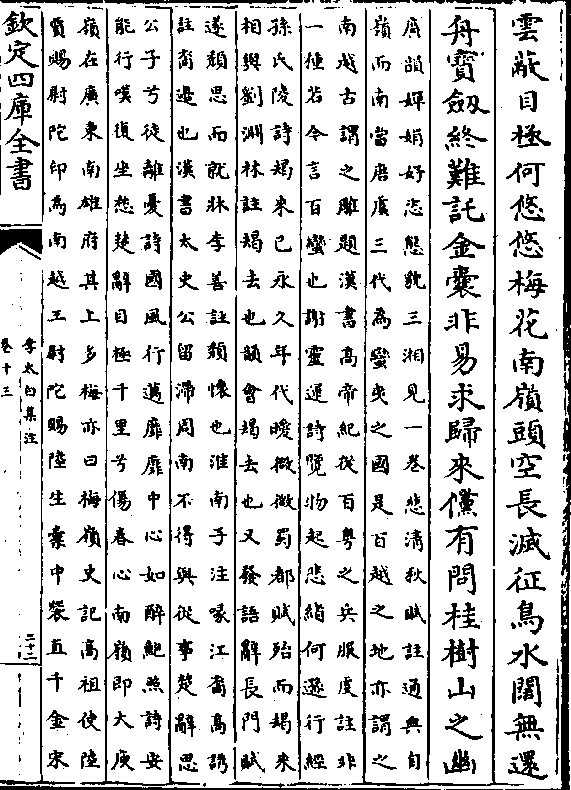 雲蔽目極何悠悠梅花南嶺頭空長滅征鳥水闊無還
舟寶劍終難託金囊非易求歸來儻有問桂樹山之幽
廣韻嬋娟好姿態貌三湘見一卷悲清秋賦註通典自
嶺而南當唐虞三代為蠻夷之國是百越之地亦謂之
南越古謂之雕題漢書高帝紀從百粤之兵服虔註非
一種若今言百蠻也謝靈運詩覽物起悲緒何遜行經
孫氏陵詩朅來已永久年代曖微微蜀都賦殆而朅來
相與劉淵林註朅去也韻會朅去也又發語辭長門賦
遂頽思而就牀李善註頽懷也淮南子注喙江裔高誘
註裔邊也漢書太史公留滯周南不得與從事楚辭思
公子兮徒離憂詩國風行邁靡靡中心如醉鮑照詩安
能行嘆復坐愁楚辭目極千里兮傷春心南嶺即大庾
嶺在廣東南雄府其上多梅亦曰梅嶺史記高祖使陸
賈賜尉陀印為南越王尉陀賜陸生槖中裝直千金宋
欽定四庫全書
李太白集注
卷十三
二十二